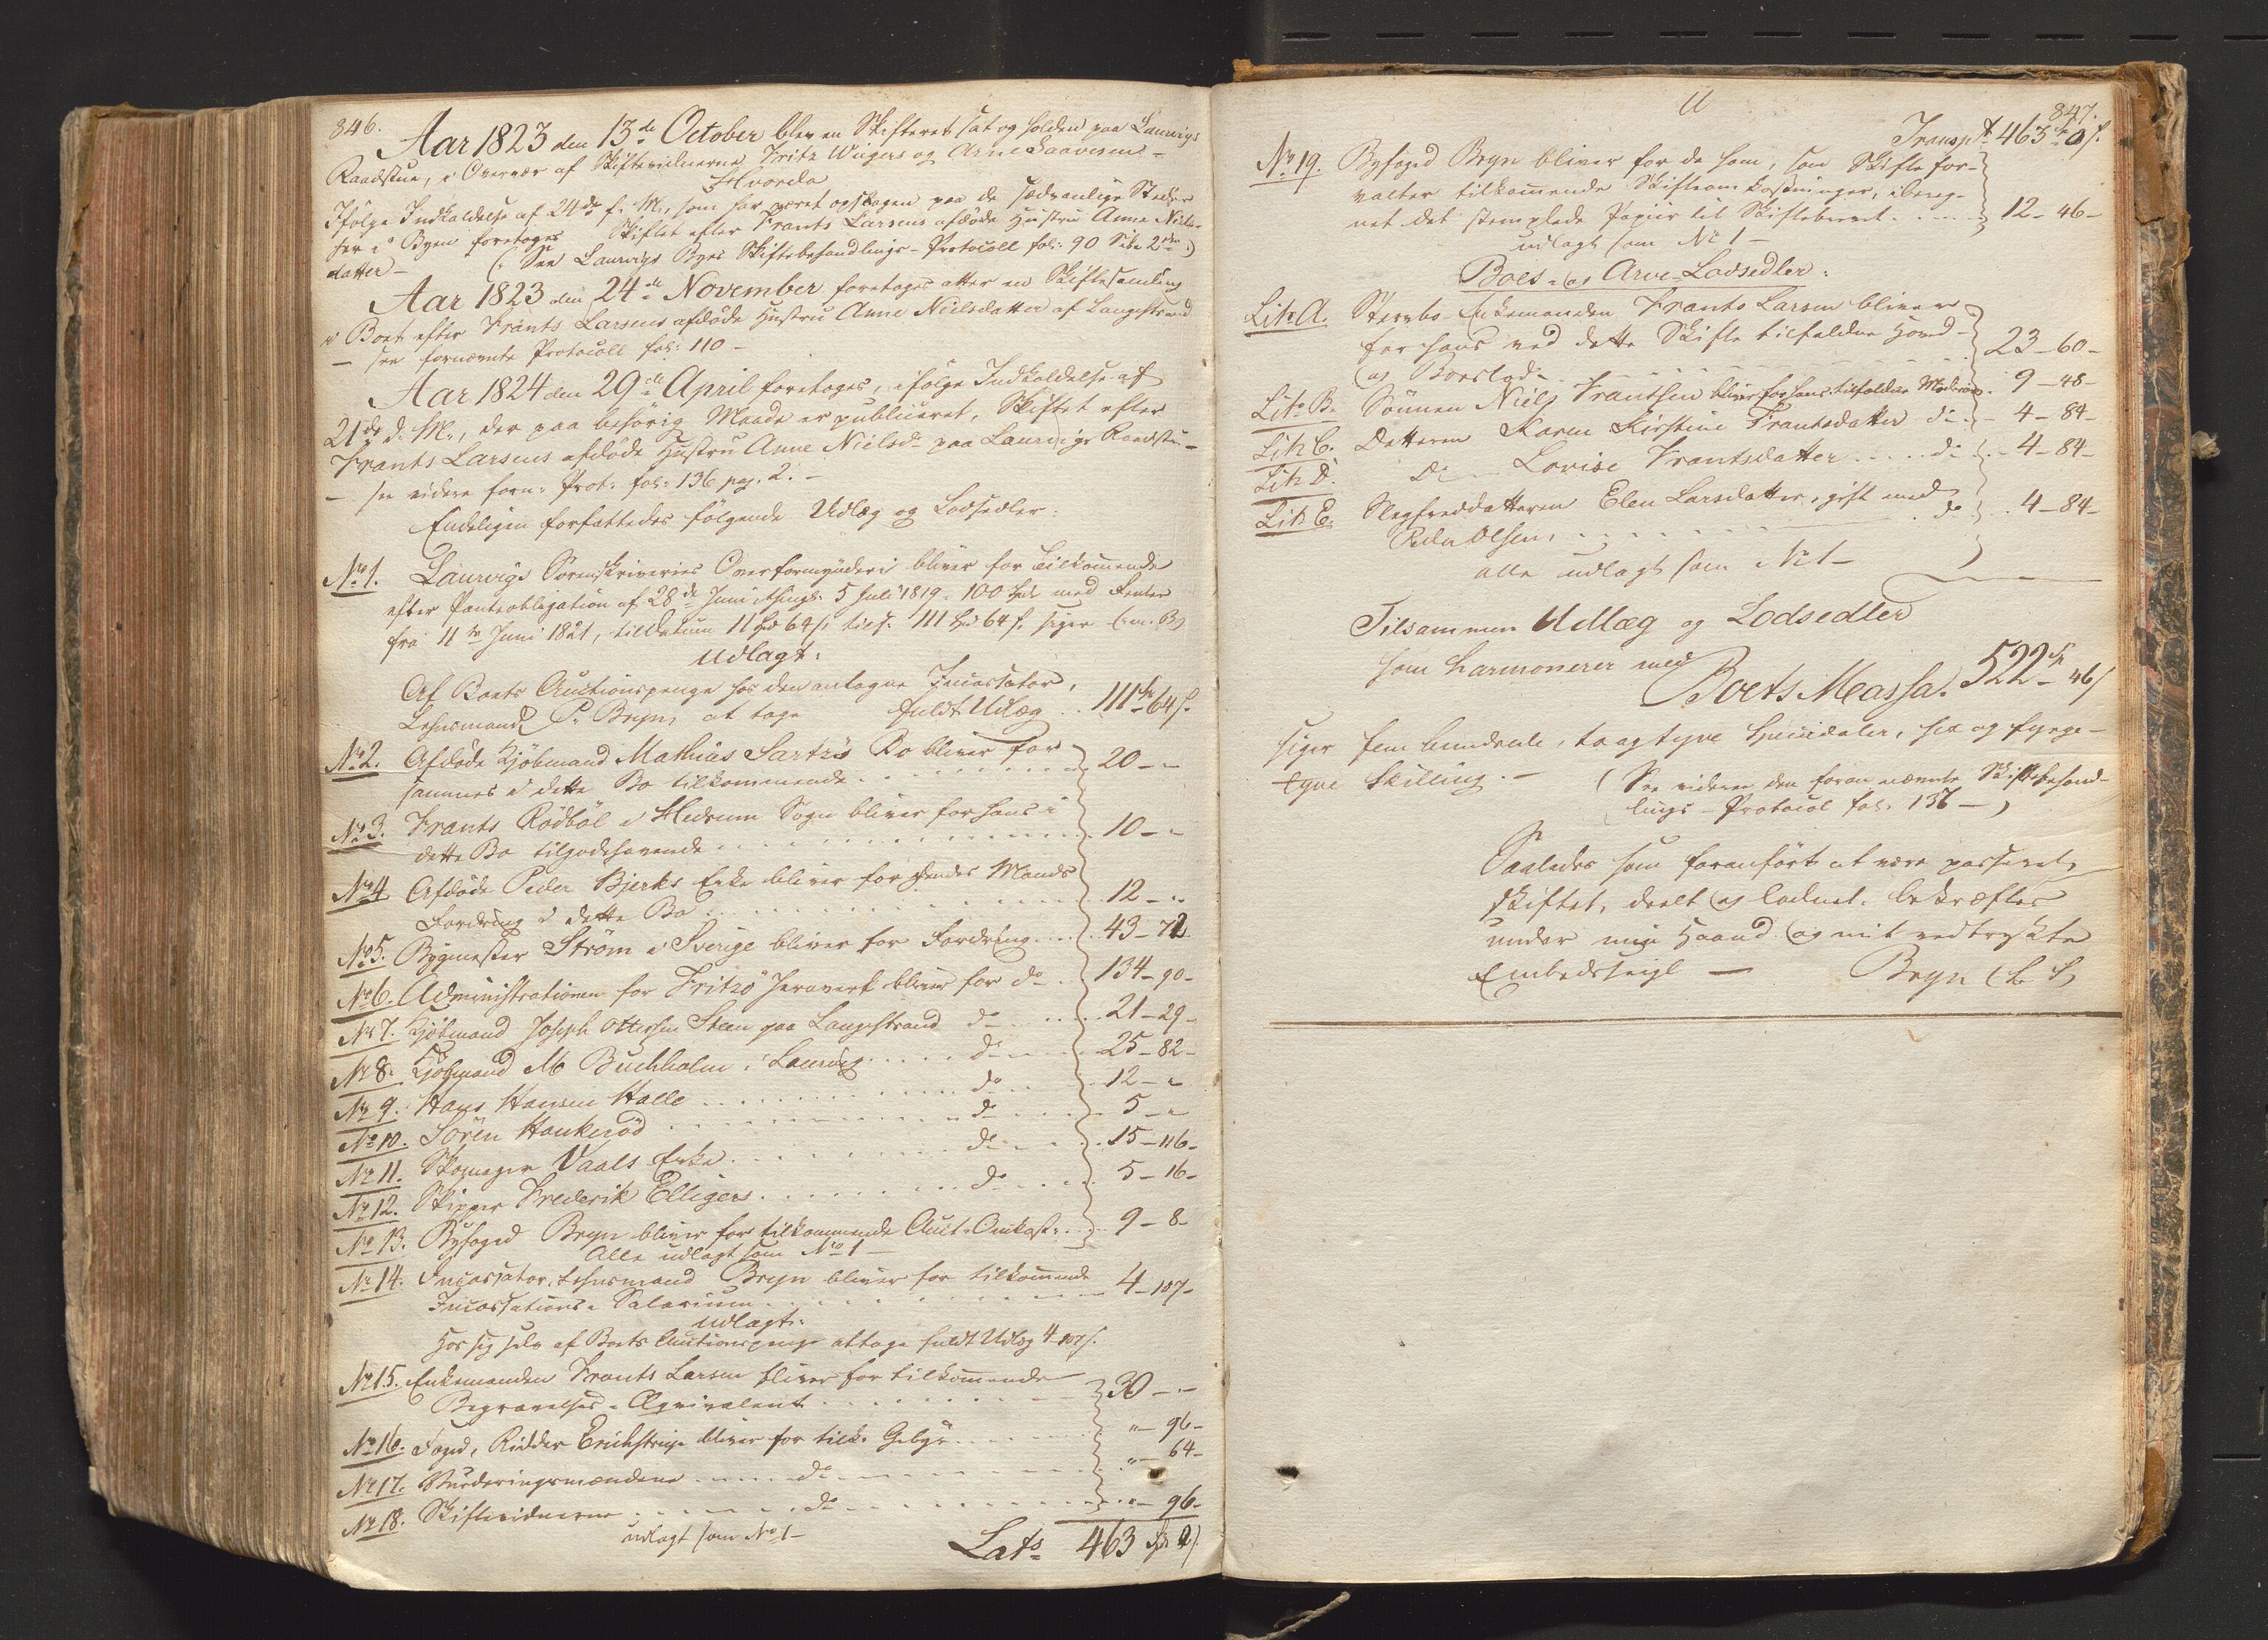 846.
Aar 1823 den 13de October blev en Skifteret sat og holden paa Laurvigs
Raadstue, i Overvær af Skiftevidnerne Fritz Wiigers og Arne Laaversens –
Hvorda
Ifølge Indkaldelse af 24de f. M., som har været opslagen paa de sædvanlige Steder
her i Byen foretoges Skiftet efter Frants Larsens afdøde Hustru Anne Niels-
datter – (: See Laurvigs Byes Skiftebehandlings-Protocoll fol: 90 Side 2den :)
Aar 1823 den 24de November foretoges atter en Skiftesamling
i Boet efter Frants Larsens afdøde Hustru Anne Nielsdatter af Langestrand
– see fornævnte Protocoll fol: 110 –
Aar 1824 den 29de April foretoges, ifølge Indkaldelse af
21de d: M., der paa behørig Maade er publiceret, Skiftet efter
Frants Larsens afdøde Hustru Anne Nielsd: paa Laurvigs Raadstue –
– see videre forn: Prot: fol: 136 pag. 2. –
Endeligen forfattedes følgende Udlæg og Lodsedler:
No 1. Laurvigs Sorenskriveries Overformynderi bliver for Tilkommende
efter Panteobligation af 28de Juni, thingl: 5 Juli 1819. 100 Spd med Renter
fra 11te Juni 1821, til Datum 11 Spd 64 s. tils: 111 Spd 64 s. siger
Udlagt:
Af Boets Auctionspenge hos den antagne Incassator,
Lehnsmand P. Bryn, at tage fuldt Udlæg . . 111 Spd 64 s.
No 2. Afdøde Kjøbmand Mathias Sartz's Bo bliver for
sammes i dette Bo tilkommende . . . 20 – "
No 3. Frants Rødbøl i Hedrum Sogn bliver for hans i
dette Bo tilgodehavende . . . 10 – "
No 4. Afdøde Peder Bjerks Enke bliver for hendes Mands
Fordring i dette Bo . . . 12 – "
No 5. Bygmester Strøm i Sverige bliver for Fordring . . . 43 – 72
No 6. Administrationen for Fritzø Jernverk bliver for do . . 134 – 90 –
No 7. Kjøbmand Joseph Ottersen Steen paa Langestrand do . . . 21 – 29 –
No 8. Kjøbmand M Buchholm i Laurvig . . . do . . . 25 – 82 –
No 9. Hans Hansen Halle . . . do . . . 12 – "
No 10. Søren Haukerød . . . do . . . 5 – "
No 11. Skomager Vaals Enke . . . do . . . 15 – 116 –
No 12. Skipper Frederik Elligers . . . do . . . 5 – 16 –
No 13. Byfoged Bryn bliver for tilkommende Auct: Omkost: . . . 9 – 8 –
Alle udlagt som No 1 –
No 14. Incassator, Lehnsmand Bryn bliver for tilkommende
Incassations-Salarium . . . 4 – 107 –
Udlagt:
Hos sig selv af Boets Auctionspenge at tage fuldt Udlæg 4 – 107 s.
No 15. Enkemanden Frants Larsen bliver for tilkommende
Begravelses-Æqvivalent . . . 30 – "
No 16. Foged, Ridder Erichstrup bliver for tilk: Gebyr . . . " – 96 –
No 17. Vurderingsmændene . . . do . . . " – 64 –
No 18. Skiftevidnerne . . . do . . . " – 96 –
udlagt som No 1 –
Lats 463 Spd 0 s.
847.
Transpt 463 Spd 0 s.
No 19. Byfoged Bryn bliver for de ham, som Skiftefor-
valter tilkommende Skifteomkostninger, ibereg-
net det stemplede Papiir til Skiftebrevet . . . 12 – 46 –
udlagt som No 1 –
Boes- og Arve-Lodsedler:
Litr A. Stervbo-Enkemanden Frants Larsen bliver
for hans ved dette Skifte tilfaldne Hoved-
og Boeslod . . . 23 – 60 –
Litr B. Sønnen Niels Frantsen bliver for hans tilfaldne Mødrenearv . 9 – 48 –
Litr C. Datteren Karen Kirstine Frantsdatter do . 4 – 84 –
Litr D. Do Lovise Frantsdatter . . . do . . 4 – 84 –
Litr E. Slegfreddatteren Elen Larsdatter, gift med
Peder Olsen, . . . do . . 4 – 84 –
alle udlagt som No 1 –
Tilsammen Udlæg og Lodsedler
som harmonerer med
Boets Massa. 522 Spd 46 s
siger fem hundrede, to og tyve Speciedaler, sex og fyrge-
tyve Skilling. – (See videre den foran nævnte Skiftebehand-
lings-Protocol fol: 136 – )
Saaledes som foranført at være passeret,
skiftet, deelt og lodnet, bekræftes
under min Haand og mit vedtrykte
Embedsseigl – Bryn (L. S.)